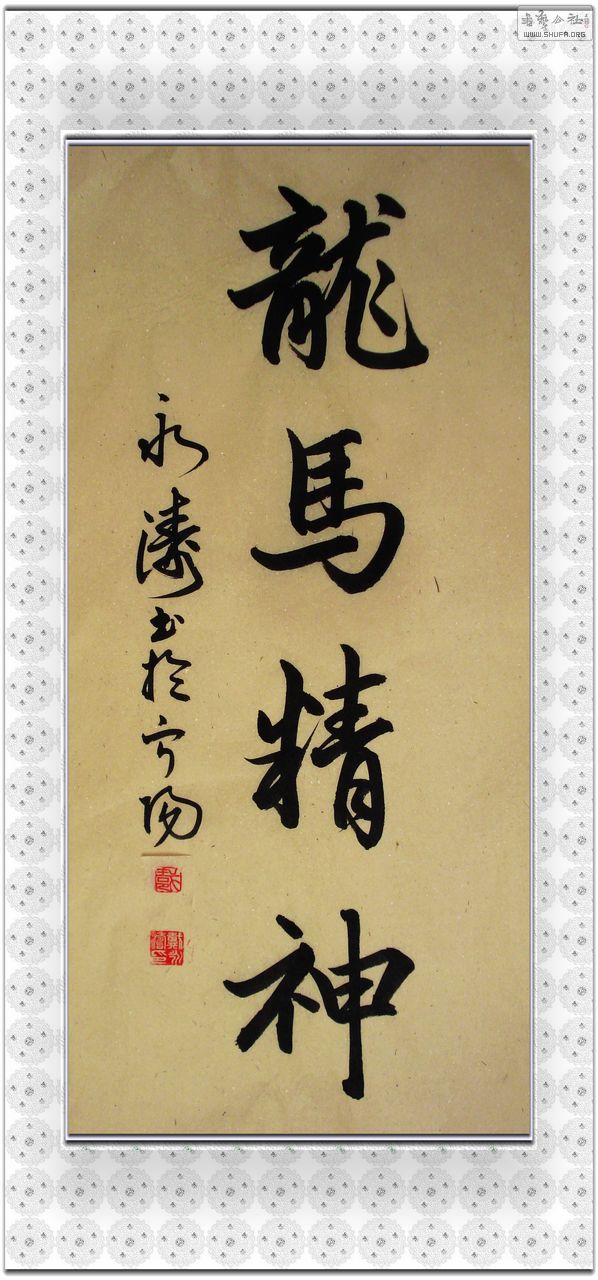 龍馬精神
永濤書於寧陽
书艺公社
WWW.SHUFA.ORG